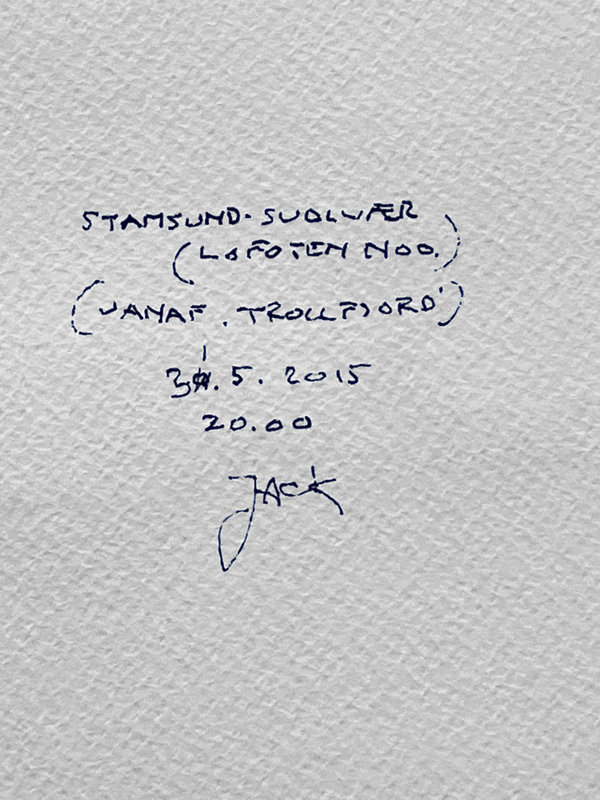 STAMSUND-SVOLVÆR
(LOFOTEN NOO.)
(VANAF 'TROLLFJORD')
31.5.2015
20.00
JACK